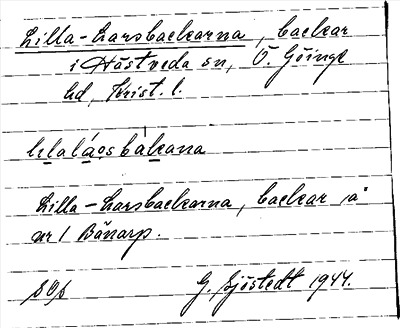 Lilla-Larsbackarna, backar
i Hästveda sn, Ö. Göinge
hd, Krist. l.
Lilla-Larsbackarna, backar på
nr 1 Bänarp.
G. Sjöstedt 1944.